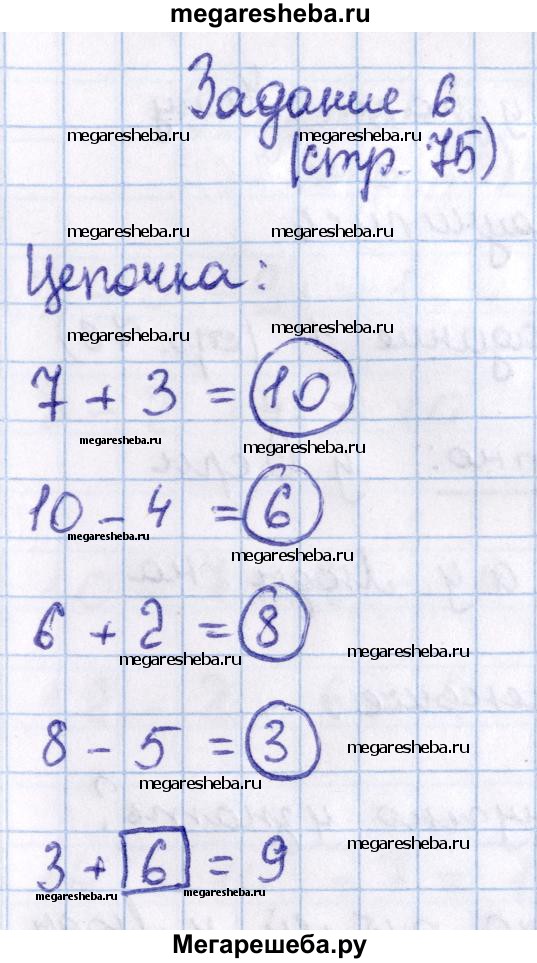 megaresheba.ru
Задание 6
megaresheba.ru megaresheba.ru
(стр. 75)
megaresheba.ru megaresheba.ru
Цепочка:
megaresheba.ru megaresheba.ru
7 + 3 = 10
megaresheba.ru megaresheba.ru
10 - 4 = 6
megaresheba.ru megaresheba.ru
6 + 2 = 8
megaresheba.ru megaresheba.ru
8 - 5 = 3
megaresheba.ru megaresheba.ru
3 + 6 = 9
megaresheba.ru megaresheba.ru megaresheba.ru
Мегарешеба.ру